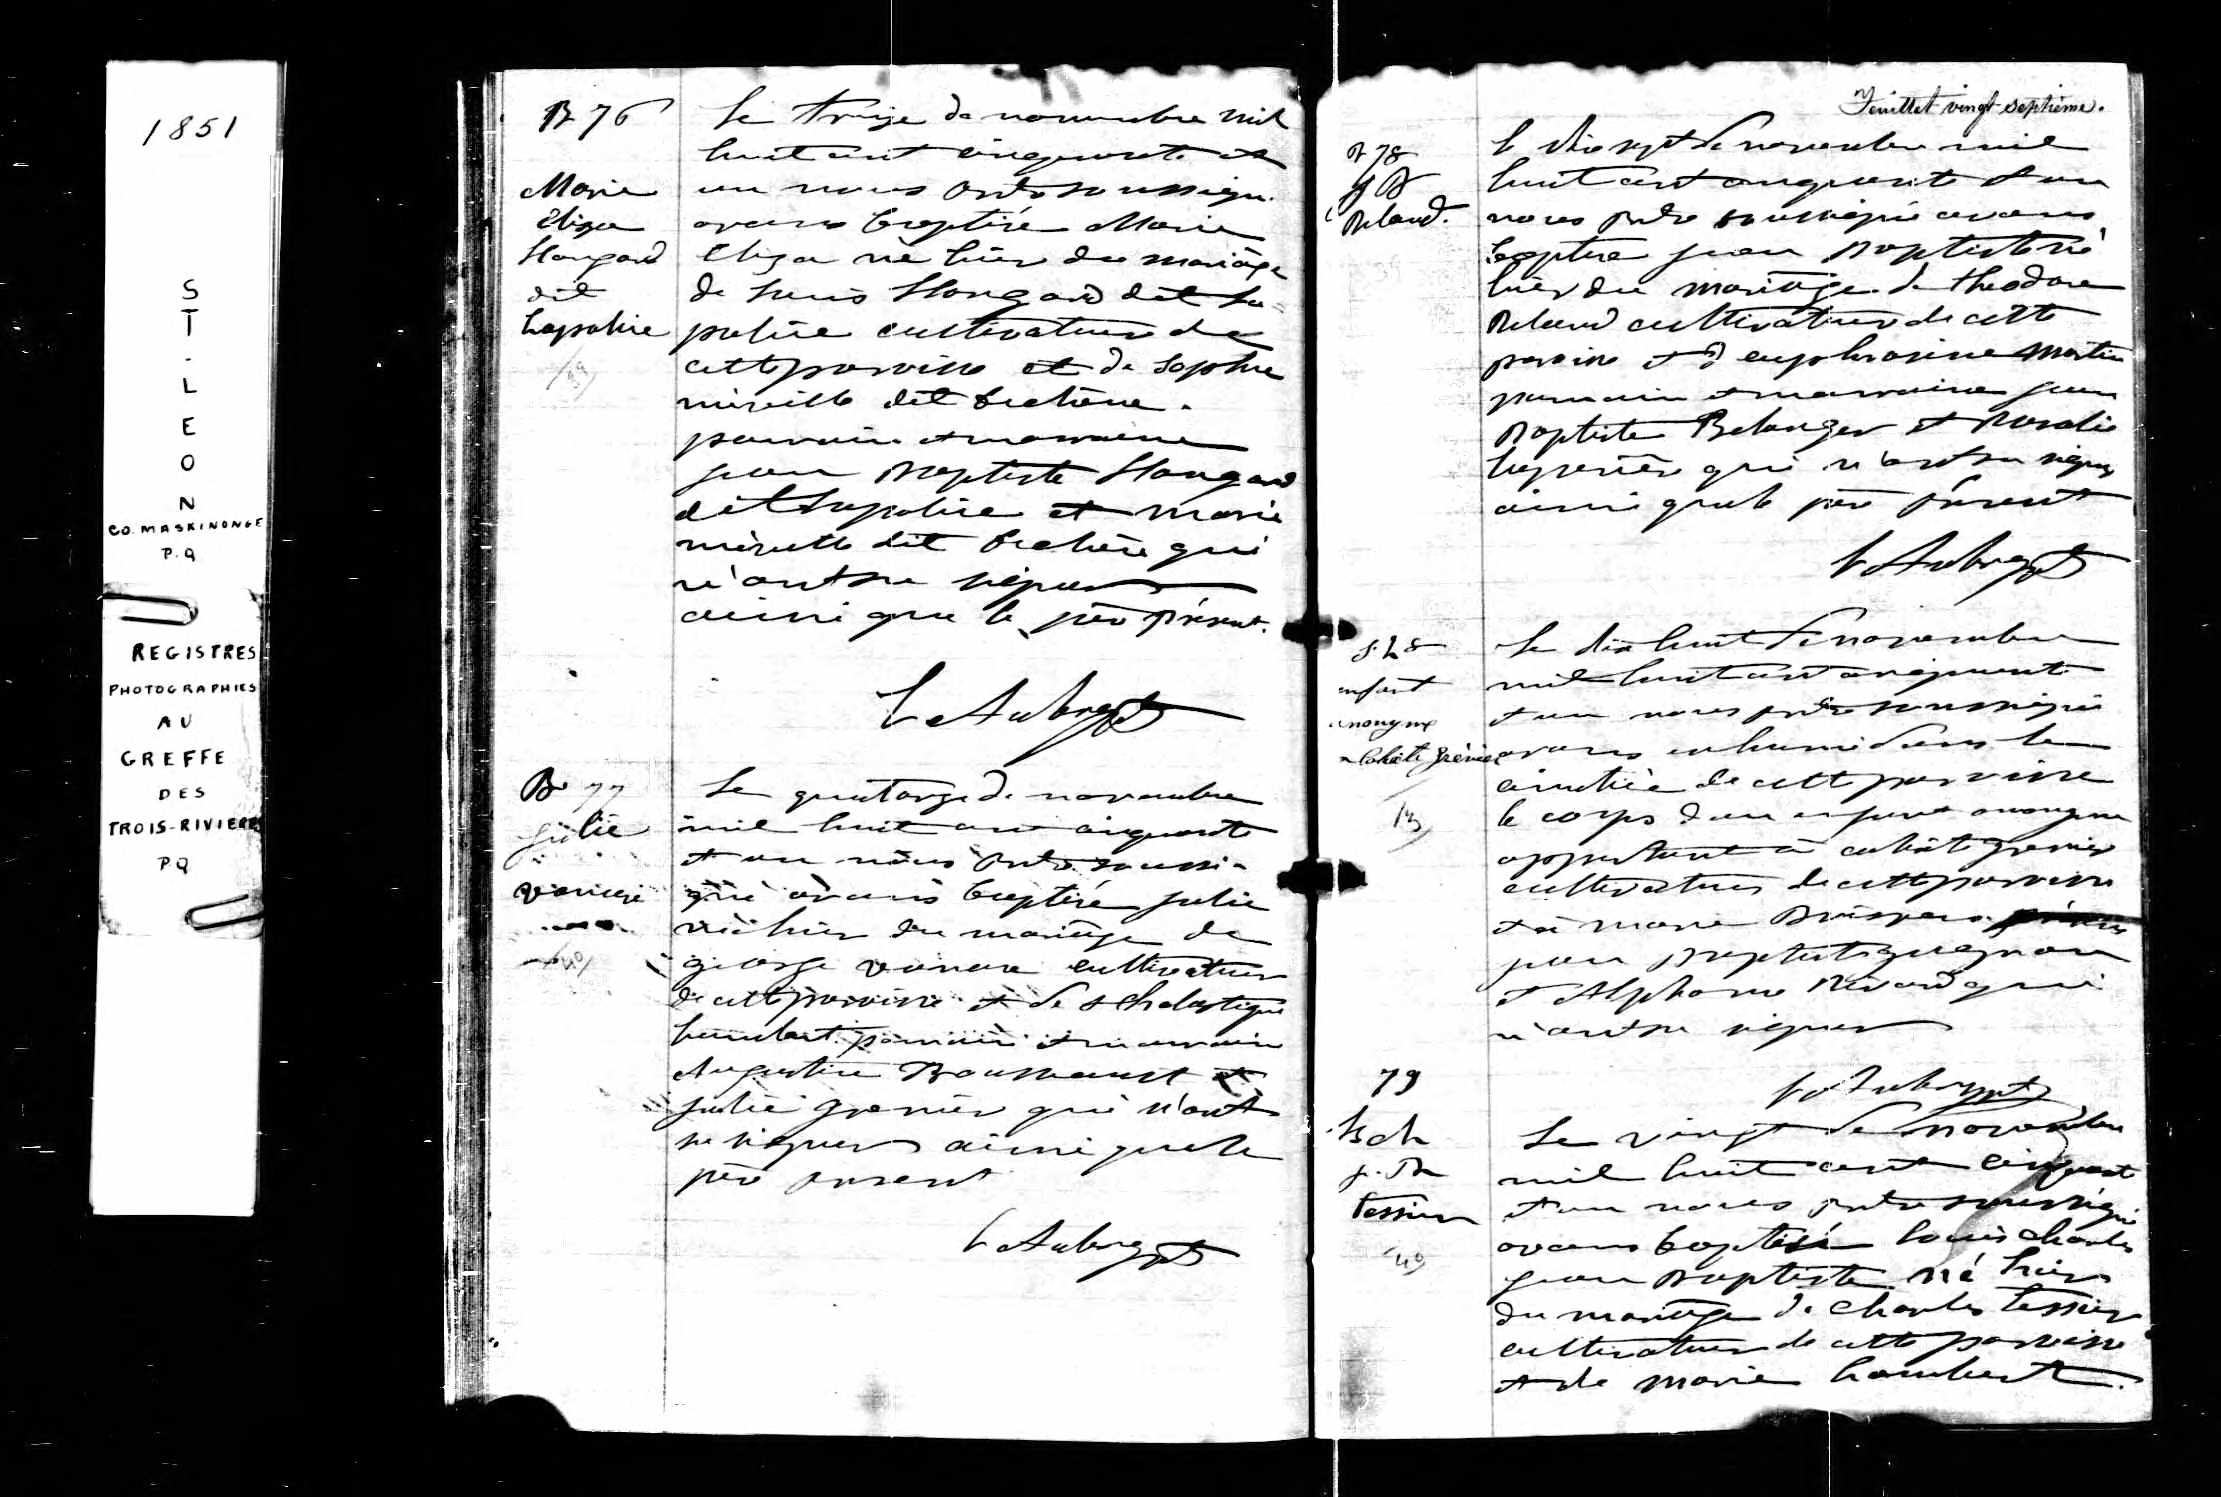 1851
ST. LEON
CO. MASKINONGE
P.Q
REGISTRES
PHOTOGRAPHIES
AU
GREFFE
DES
TROIS-RIVIERES
PQ
B 76
Marie
Eliza
Hougard
dit
Lapoline
Le treize de novembre mil
huit cent cinquante et
un nous prêtre soussigné
avons baptisé Marie
Eliza né hier du mariage
de Louis Hougard dit La-
poline cultivateur de
cette paroisse et de Sophie
dit
parrain et marraine
jean Baptiste Hougard
dit Lapoline et marie
dit qui
n'ont su signer
ainsi que le père présent.
L Aubry ptr
B 77
julie
Le quatorze de novembre
mil huit cent cinquante
et un nous prêtre soussi-
gné avons baptisé julie
né hier du mariage de
george cultivateur
de cette paroisse et de scholastique
Lambert parrain et marraine
Augustin et
julie grenier qui n'ont
su signer ainsi que le
père present
L Aubry ptr
Feuillet vingt septième.
B 78
J B
Beland.
le dix sept de novembre mil
huit cent cinquante et un
nous prêtre soussigné avons
baptisé jean Baptiste né
hier du mariage de theodore
Beland cultivateur de cette
paroisse et d'euphrosine Martin
parrain et marraine jean
Baptiste Belanger et Rosalie
qui n'ont su signer
ainsi que le père présent
L Aubry ptr
enfant
anonyme
grenier
13
Le dix huit de novembre
mil huit cent cinquante
et un nous prêtre soussigné
avons inhumé dans le
cimetière de cette paroisse
le corps d'un enfant anonyme
appartenant à grenier
cultivateur de cette paroisse
et à marie
jean Baptiste
et Alphonse Rivard qui
n'ont su signer
L Aubry ptr
79
Ls ch
j. B
tessier
Le vingt de novembre
mil huit cent cinquante
et un nous prêtre soussigné
avons baptisé louis charles
jean Baptiste né hier
du mariage de charles tessier
cultivateur de cette paroisse
et de marie Lambert.